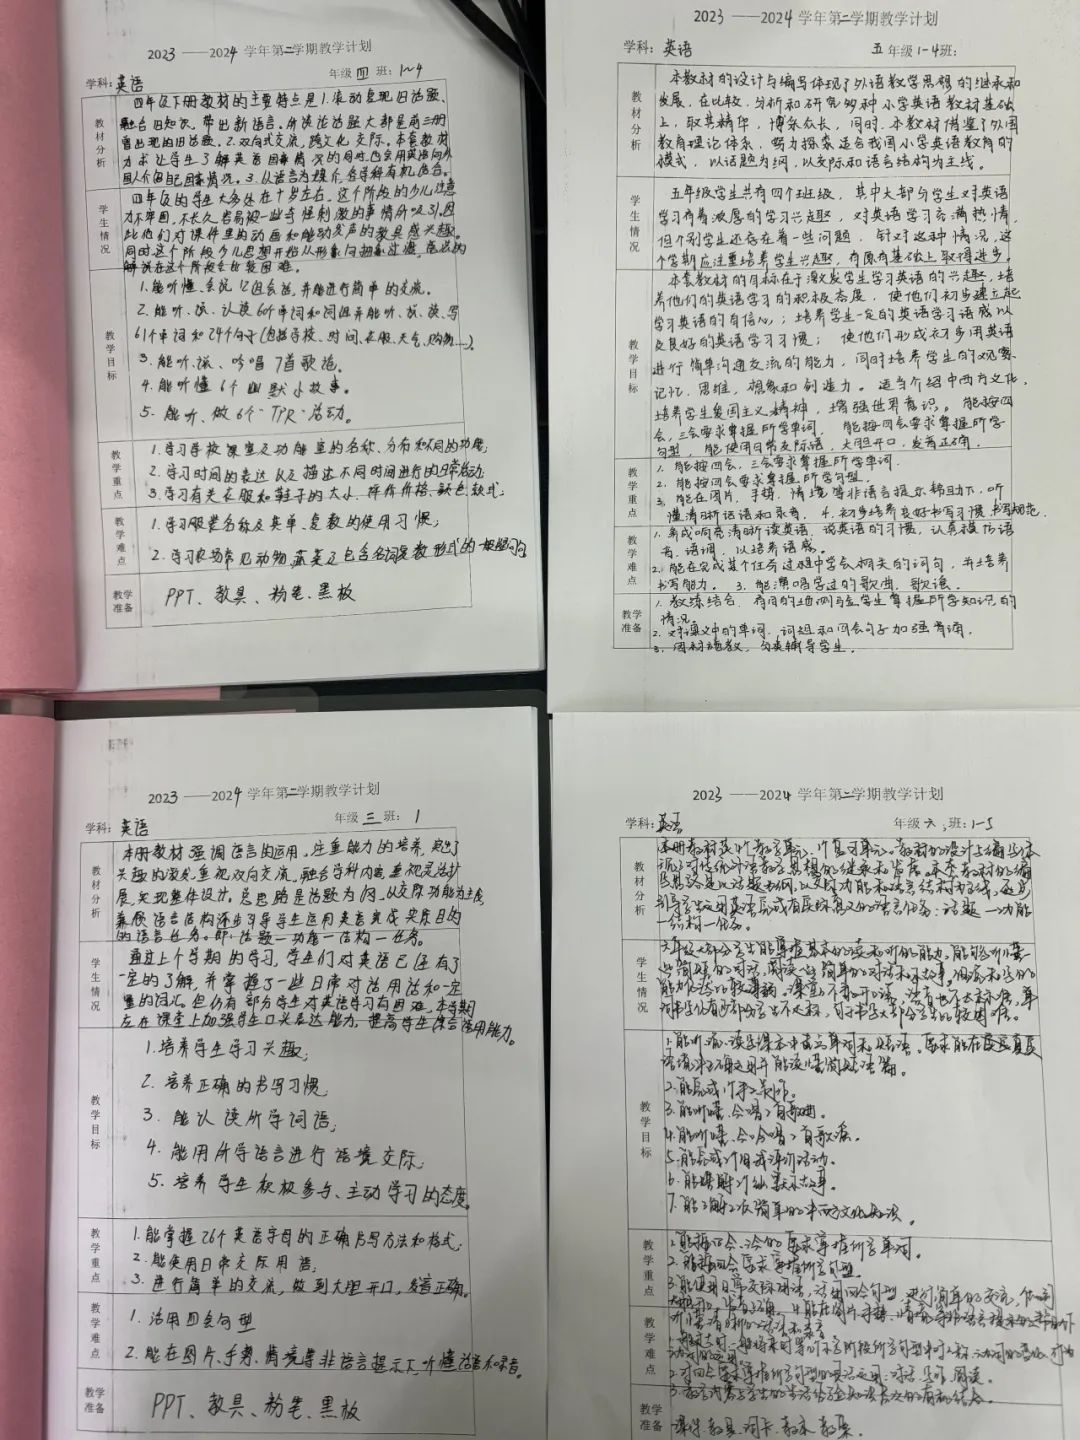 2023——2024学年第二学期教学计划
学科：英语
年级 四 班：1~4
教材分析
四年级下册教材的主要特点是1.滚动复现旧话题、
融合旧知识，带出新语言。所谈论话题大部是前三册
曾出现的旧话题。2.双向式交流，跨文化交际。本套教材
力求让学生了解英语国家情况的同时，也会用英语向外
国人介绍自己国家情况。3.以语言为媒介，各学科有机结合。
学生情况
四年级的学生大多处在十岁左右，这个阶段的少儿注意
力不牢固，不长久，容易被一些奇怪刺激的事情所吸引，因
此他们对课件里的动画和能动发声的教具感兴趣。
同时这个阶段少儿思想开始从形象向抽象过渡，
解说在这个阶段会比较困难。
教学目标
1.能听懂、会说12组会话，并能进行简单的交流。
2.能听、说、认读60个单词和词组并能听、说、读、写
61个单词和24个句子（包括学校、时间、衣服、天气、购物...）。
3.能听、说、吟唱7首歌谣。
4.能听懂6个幽默小故事。
5.能听、做6个“TPR”活动。
教学重点
1.学习学校课室及功能室的名称、分布和不同的功度；
2.学习时间的表达以及描述不同时间进行的日常活动
3.学习有关衣服和鞋子的大小、择价价格、颜色、款式；
教学难点
1.学习服装名称及其单、复数的使用习惯；
2.学习农场常见动物、蔬菜及包含名词复数形式的一般疑问句
教学准备
PPT、教具、粉笔、黑板
2023——2024学年第二学期教学计划
学科：英语
五年级1-4班：
教材分析
本教材的设计与编写体现了外语教学思想的继承和
发展，在比较、分析和研究多种小学英语教材基础
上，取其精华，博采众长，同时，本教材借鉴了外国
教育理论体系，努力探索适合我国小学英语教育的
模式，以话题为纲，以交际和语言结构为主线。
学生情况
五年级学生共有四个班级，其中大部分学生对英语
学习有着浓厚的学习兴趣，对英语学习充满热情，
但个别学生还存在着一些问题，针对这种情况，这
个学期应注重培养学生兴趣，有原有基础上取得进步。
教学目标
本套教材的目标在于激发学生学习英语的兴趣，培
养他们的英语学习的积极态度，使他们初步建立起
学习英语的自信心；培养学生一定的英语学习语感以
及良好的英语学习习惯；使他们形成初步用英语
进行简单沟通交流的能力，同时培养学生的观察、
记忆、思维、想象和创造力。适当介绍中西方文化，
培养学生爱国主义精神，增强世界意识。能按四
会、三会要求掌握所学单词，能按四会要求掌握所学
句型，能使用日常交际语，大胆开口，发音正确。
教学重点
1.能按四会、三会要求掌握所学单词.
2.能按四会要求掌握所学句型.
3.能在图片、手势、情境等非语言提示帮助下，听
懂清晰话语和录音.4.初步培养良好书写习惯，书写规范.
教学难点
1.养成响亮清晰读英语、说英语的习惯，认真模仿语
音、语调，以培养语感。
2.能在完成某个任务过程中学会相关的词句，并培养
书写能力。3.能演唱学过的歌曲、歌谣。
教学准备
1.教练结合，有目的地测验学生掌握所学知识的
情况
2.对课文中的单词、词组和四会句子加强背诵
3.因材施教，分类辅导学生.
2023——2024学年第二学期教学计划
学科：英语
年级 三 班：1
教材分析
本册教材强调语言的运用，注重能力的培养，突出了
兴趣的激发，重视双向交流，融合学科内容，重视灵活扩
展，实现整体设计。总思路是话题为纲，以交际功能为主线，
兼顾语言结构逐步引导学生运用英语完成实际目的
的语言任务。即：话题—功能—结构—任务。
学生情况
通过上个学期的学习，学生们对英语已经有了
一定的了解，并掌握了一些日常对话用语和一定
量的词汇。但仍有部分学生对英语学习有困难，本学期
应在课堂上加强学生口头表达能力，提高学生综合语用能力。
教学目标
1.培养学生学习兴趣；
2.培养正确的书写习惯；
3.能认读所学词语；
4.能用所学语言进行语境交际；
5.培养学生积极参与、主动学习的态度。
教学重点
1.能掌握26个英语字母的正确书写方法和格式；
2.能使用日常交际用语；
3.进行简单的交流，做到大胆开口，发音正确。
教学难点
1.活用四会句型
2.能在图片、手势、情境等非语言提示下，听懂话语和录音。
教学准备
PPT、教具、粉笔、黑板
2023——2024学年第二学期教学计划
学科：英语
年级 六，班：1-5
教材分析
导学生运用英语完成有实际意义的语言任务：话题—功能
—结构—任务。
学生情况
六年级大部分学生能掌握基本的读和听的能力，能够听懂一
些简单的对话，阅读一些简单的对话和故事。
教学目标
1.能听、说、读
2.能完成
3.能听懂、会唱2首歌曲。
4.能听懂、会吟唱2首歌谣。
5.能完成1个自我评价活动。
6.能理解1个幽默小故事。
7.能了解2次简单的中西方文化知识。
教学重点
1.能按四会、三会的要求掌握所学单词.
2.能按四会要求掌握所学句型
3.能使用日常交际用语，活用四会句型，进行简单的交流，
教学难点
2.对四会要求掌握所学句型的灵活运用：对话、写作、阅读。
教学准备
课件、教具、词卡、